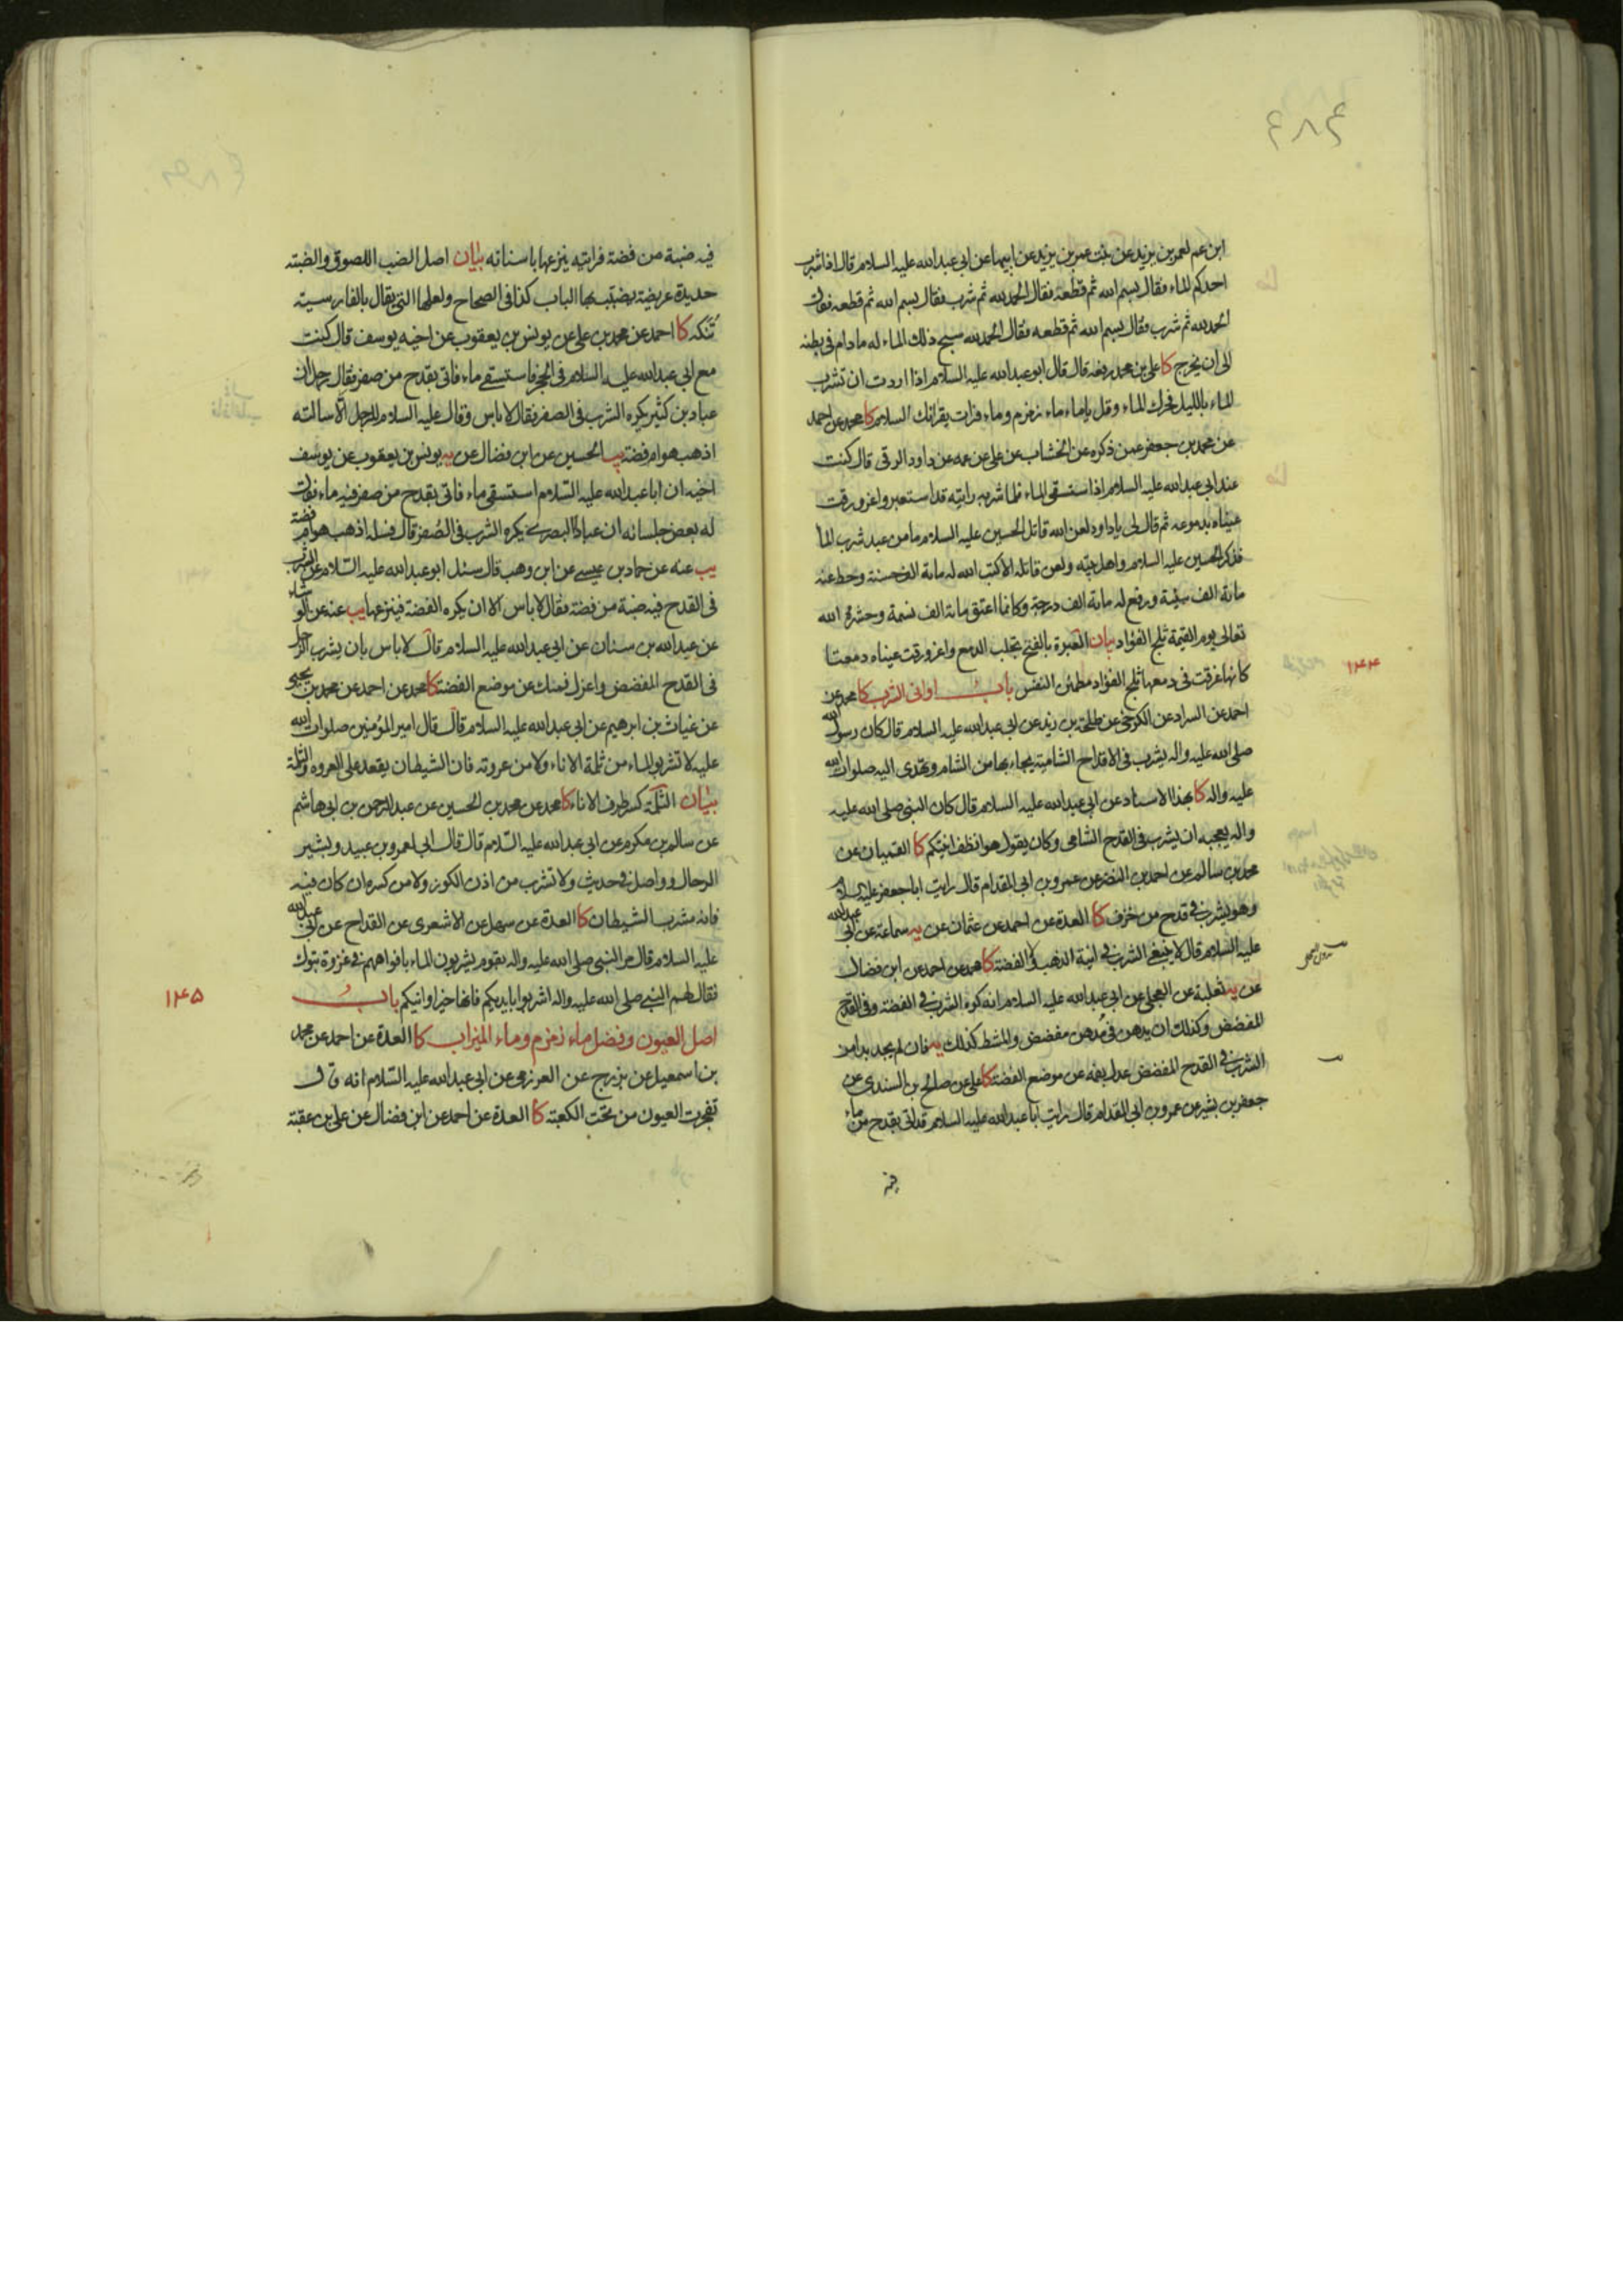 ٤٨٤
ابن عم لعمر بن يزيد عن بنت عمر بن يزيد عن ابيها عن ابي عبدالله عليه السلام قال اذا شرب
احدكم الماء فقال بسم الله ثم قطعه فقال الحمدلله ثم شرب فقال بسم الله ثم قطعه فقال
الحمدلله ثم شرب فقال بسم الله ثم قطعه فقال الحمدلله سبح ذلك الماء له مادام فى بطنه
الى ان يخرج كا على بن محمد رفعه قال قال ابو عبدالله عليه السلام اذا اردت ان تشرب
الماء بالليل فحرك الماء وقل ياماء ماء زمزم وماء فرات يقرانك السلام كا محمد عن احمد
عن محمد بن جعفر عمن ذكره عن الخشاب عن على عن عمه عن داود الرقى قال كنت
عند ابى عبدالله عليه السلام اذا ستسقى الماء فلما شربه رايته قد استعبر واغرورقت
عيناه بدموعه ثم قال لى ياداود لعن الله قاتل الحسين عليه السلام مامن عبد شرب الما
فذكر الحسين عليه السلام واهل بيته ولعن قاتله الا كتب الله له مائة الف حسنة وحط عنه
مائة الف سيئة ورفع له مائة الف درجة وكانما اعتق مائة الف نسمة وحشره الله
تعالى يوم القيمة ثلج الفؤاد بيان العبرة بالفتح تجلب الدمع واغرورقت عيناه دمعتا
كانها غرقت فى دمعها ثلج الفؤاد مطمئن النفس باب اوانى الشرب كا محمد عن
١٤٤
احمد عن السراد عن الكرخى عن طلحة بن زيد عن ابى عبدالله عليه السلام قال كان رسول الله
صلى الله عليه واله يشرب فى الاقداح الشامية يجاء بها من الشام وتهدى اليه صلوات الله
عليه واله كا بهذا الاسناد عن ابى عبدالله عليه السلام قال كان النبى صلى الله عليه
واله يعجبه ان يشرب فى القدح الشامى وكان يقول هو انظف انيتكم كا القميان عن
محمد بن سالم عن احمد بن النضر عن عمرو بن ابى المقدام قال رايت ابا جعفر عليه السلام
وهو يشرب فى قدح من خزف كا العدة عن احمد عن عثمان عن يه سماعة عن ابى عبدالله
عليه السلام قال لا ينبغى الشرب فى انية الذهب والفضة كا محمد عن احمد عن ابن فضال
عن يه ثعلبة عن العجلى عن ابى عبدالله عليه السلام انه كره الشرب فى الفضة وفى القدح
المفضض وكذلك ان يدهن فى مدهن مفضض والمشط كذلك يه فان لم يجد بدا من
الشرب فى القدح المفضض عدل بفمه عن موضع الفضة كا على عن صالح بن السندى عن
جعفر بن بشير عن عمرو بن ابى المقدام قال رايت ابا عبدالله عليه السلام قد اتى بقدح من ماء
فيه
فيه ضبة من فضة فرايته ينزعها باسنانه بيان اصل الضب اللصوق والضبته
حديدة عريضة يضبب بها الباب كذا فى الصحاح ولعلها التى يقال بالفارسية
تنكه كا احمد عن محمد بن على عن يونس بن يعقوب عن اخيه يوسف قال كنت
مع ابى عبدالله عليه السلام فى الحجر فاستسقى ماء فاتى بقدح من صفر فقال رجل ان
عباد بن كثير يكره الشرب فى الصفر فقال لا باس وقال عليه السلام للرجل الا سالته
اذهب هو ام فضة يب الحسين عن ابن فضال عن يه يونس بن يعقوب عن يوسف
اخيه ان ابا عبدالله عليه السلام استسقى ماء فاتى بقدح من صفر فيه ماء فقال
له بعض جلسائه ان عباد البصرى يكره الشرب فى الصفر قال فسله اذهب هو ام فضة
يب عنه عن حماد بن عيسى عن ابن وهب قال سئل ابو عبدالله عليه السلام عن الشرب
فى القدح فيه ضبة من فضة فقال لا باس الا ان يكره الفضة فينزعها يب عنه عن الوشاء
عن عبدالله بن سنان عن ابى عبدالله عليه السلام قال لا باس بان يشرب الرجل
فى القدح المفضض واعزل فمك عن موضع الفضة كا محمد عن احمد عن محمد بن يحيى
عن غياث بن ابرهيم عن ابى عبدالله عليه السلام قال قال امير المؤمنين صلوات الله
عليه لا تشربوا الماء من ثلمة الاناء ولا من عروته فان الشيطان يقعد على العروه والثلمة
بيان الثلمة كسر طرف الاناء كا محمد عن محمد بن الحسين عن عبدالرحمن بن ابى هاشم
عن سالم بن مكرم عن ابى عبدالله عليه السلام قال قال ابى لعمرو بن عبيد وبشير
الرحال وواصل فى حديث ولا تشرب من اذن الكوز ولا من كسره ان كان فيه
فانه مشرب الشيطان كا العدة عن سهل عن الاشعرى عن القداح عن ابى عبدالله
عليه السلام قال مر النبى صلى الله عليه واله بقوم يشربون الماء بافواههم فى غزوة تبوك
فقال لهم النبى صلى الله عليه واله اشربوا بايديكم فانها خير اوانيكم باب
١٤٥
اصل العيون وفضل ماء زمزم وماء الميزاب كا العدة عن احمد عن محمد
بن اسمعيل عن بزرج عن العرزمى عن ابى عبدالله عليه السلام انه قال
تفجرت العيون من تحت الكعبة كا العدة عن احمد عن ابن فضال عن على بن عقبة